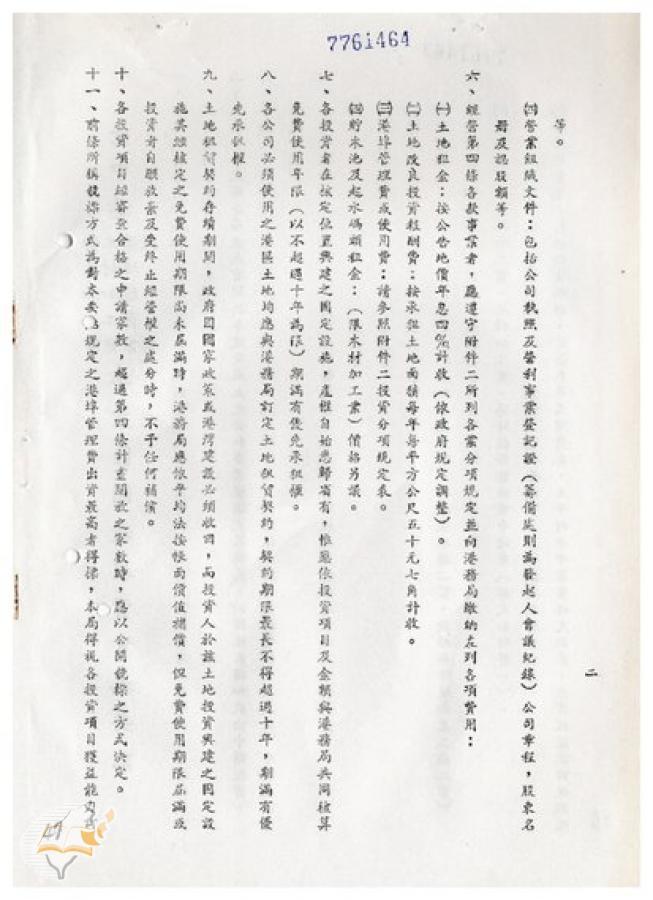 7761464
等。
㈣營業組織文件：包括公司執照及營利事業登記證（籌備處則為發起人會議紀錄）公司章程，股東名
冊及認股額等。
六、經營第四條各款事業者，應遵守附件二所列各業分項規定並向港務局繳納左列各項費用：
㈠土地租金：按公告地價年息四％計收（依政府規定調整）。
㈡土地改良投資報酬費：按承租土地面積每年每平方公尺五十元七角計收。
㈢港埠管理費或使用費：請參照附件二投資分項規定表。
㈣貯木池及起水碼頭租金：（限木材加工業）價格另議。
七、各投資者在核定位置興建之固定設施，產權自始悉歸省有，惟應依投資項目及金額與港務局共同核算
免費使用年限（以不超過十年為限）期滿有優先承租權。
八、各公司必須使用之港區土地均應與港務局訂定土地租賃契約，契約期限最長不得超過十年，期滿有優
先承租權。
九、土地租賃契約存續期間，政府因國家政策或港灣建設必須收回，而投資人於該土地投資興建之固定設
施其經核定之免費使用期限尚未屆滿時，港務局應依平均法按帳面價值補償，但免費使用期限屆滿或
投資者自願放棄及受終止經營權之處分時，不予任何補償。
十、各投資項目經審查合格之申請家數，超過第四條計畫開放之家數時，應以公開競標之方式決定。
十一、前條所稱競標方式為對本要點規定之港埠管理費出資最高者得標，本局得視各投資項目獲益能力
二
49